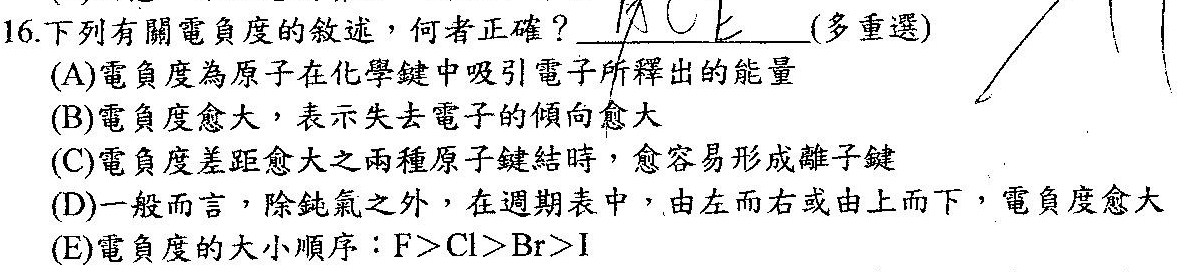 16.下列有關電負度的敘述，何者正確？__________(多重選)
(A)電負度為原子在化學鍵中吸引電子所釋出的能量
(B)電負度愈大，表示失去電子的傾向愈大
(C)電負度差距愈大之兩種原子鍵結時，愈容易形成離子鍵
(D)一般而言，除鈍氣之外，在週期表中，由左而右或由上而下，電負度愈大
(E)電負度的大小順序：F＞Cl＞Br＞I